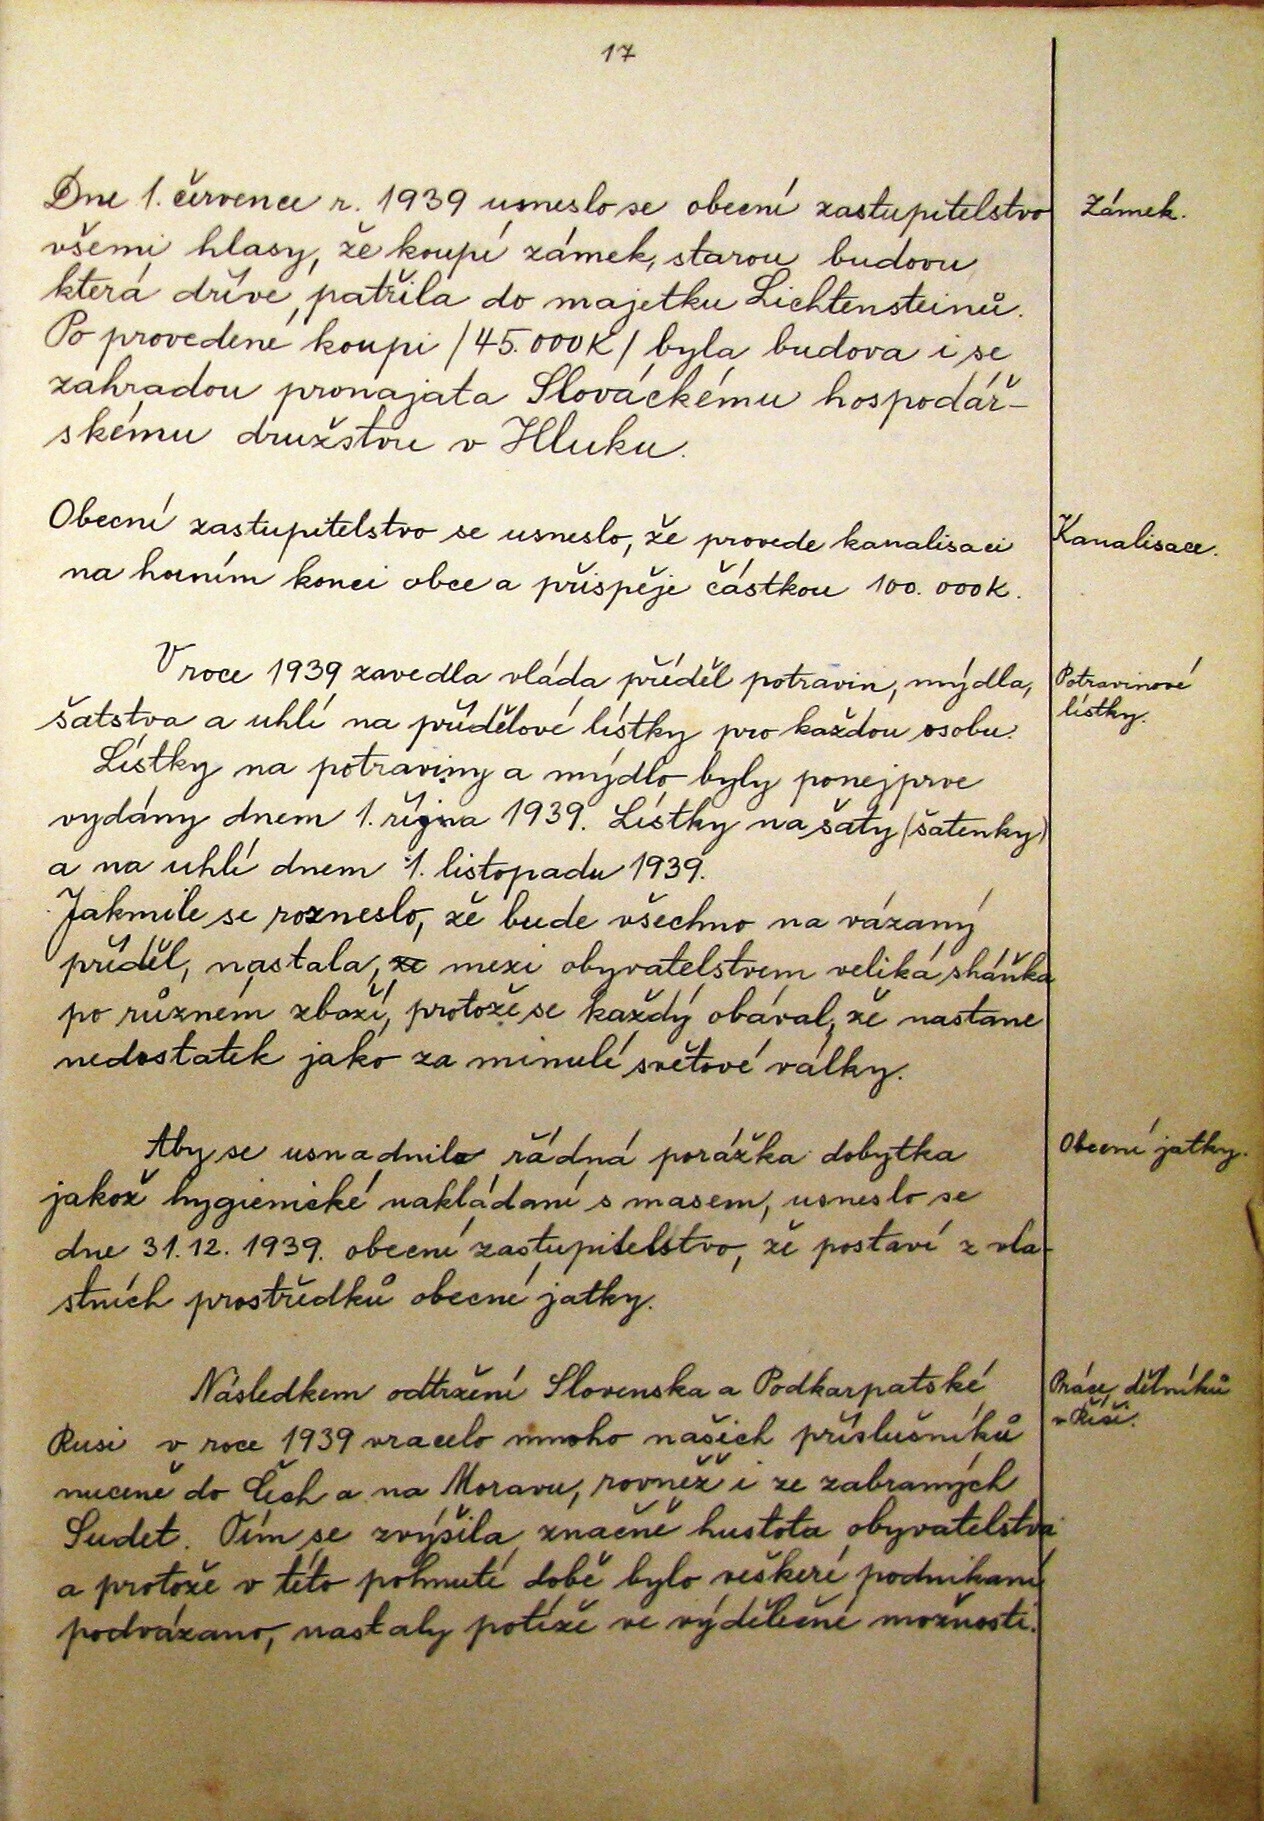 17
Dne 1. července r. 1939 usneslo se obecní zastupitelstvo
Zámek.
všemi hlasy, že koupí zámek, starou budovu,
která dříve patřila do majetku Lichtensteinů.
Po provedené koupi /45.000K/ byla budova i se
zahradou pronajata Slováckému hospodář-
skému družstvu v Hluku.
Obecní zastupitelstvo se usneslo, že provede kanalisaci
Kanalisace.
na horním konci obce a přispěje částkou 100.000K.
V roce 1939 zavedla vláda příděl potravin, mýdla,
Potravinové
lístky.
šatstva a uhlí na přídělové lístky pro každou osobu.
Lístky na potraviny a mýdlo byly ponejprve
vydány dnem 1. října 1939. Lístky na šaty (šatenky)
a na uhlí dnem 1. listopadu 1939.
Jakmile se rozneslo, že bude všechno na vázaný
příděl, nastala, že mezi obyvatelstvem veliká sháňka
po různém zboží, protože se každý obával, že nastane
nedostatek jako za minulé světové války.
Aby se usnadnila řádná porážka dobytka
Obecní jatky.
jakož hygienické nakládání s masem, usneslo se
dne 31.12. 1939. obecní zastupitelstvo, že postaví z vla-
stních prostředků obecné jatky.
Následkem odtržení Slovenska a Podkarpatské
Práce dělníků
v Říši.
Rusi v roce 1939 vracelo mnoho našich příslušníků
nuceně do Čech a na Moravu, rovněž i ze zabraných
Sudet. Tím se zvýšila značně hustota obyvatelstva
a protože v této pohnuté době bylo veškeré podnikání
podvázano, nastaly potíže ve výdělečné možnosti.